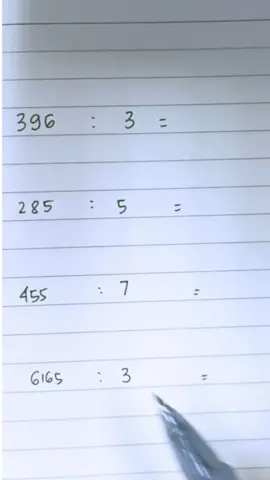 396 : 3 =
285 : 5 =
455 : 7 =
6165 : 3 =